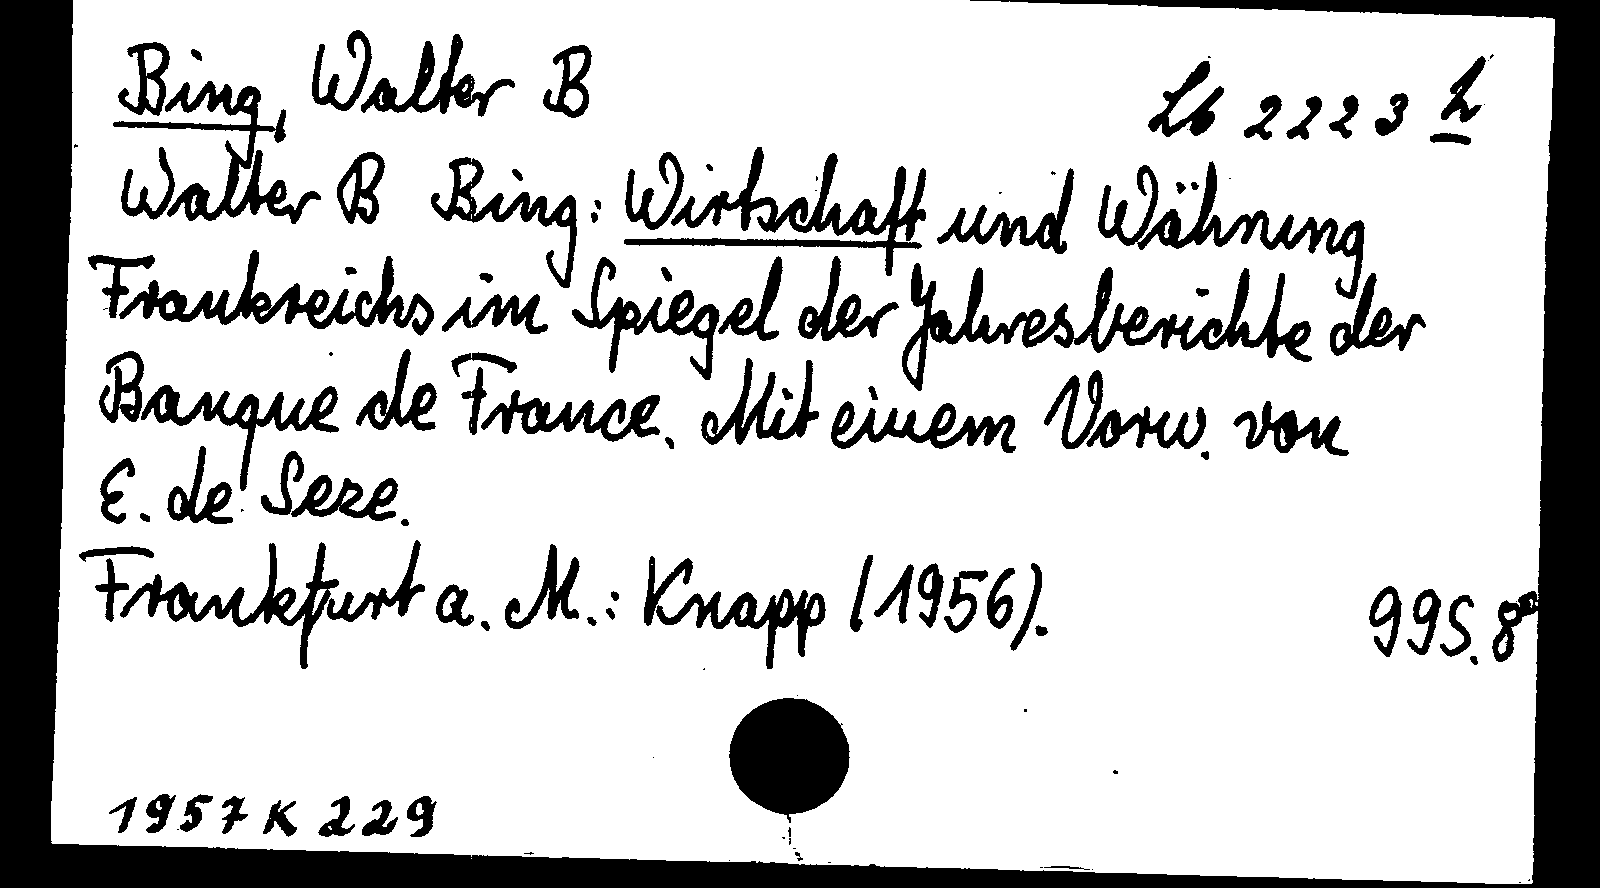 Bing, Walter B
Lb 2223 h
Walter B Bing: Wirtschaft und Währung
Frankreichs im Spiegel der Jahresberichte der
Banque de France. Mit einem Vorw. von
E. de Seze.
Frankfurt a. M.: Knapp (1956).
99 S. 8°
1957 K 229